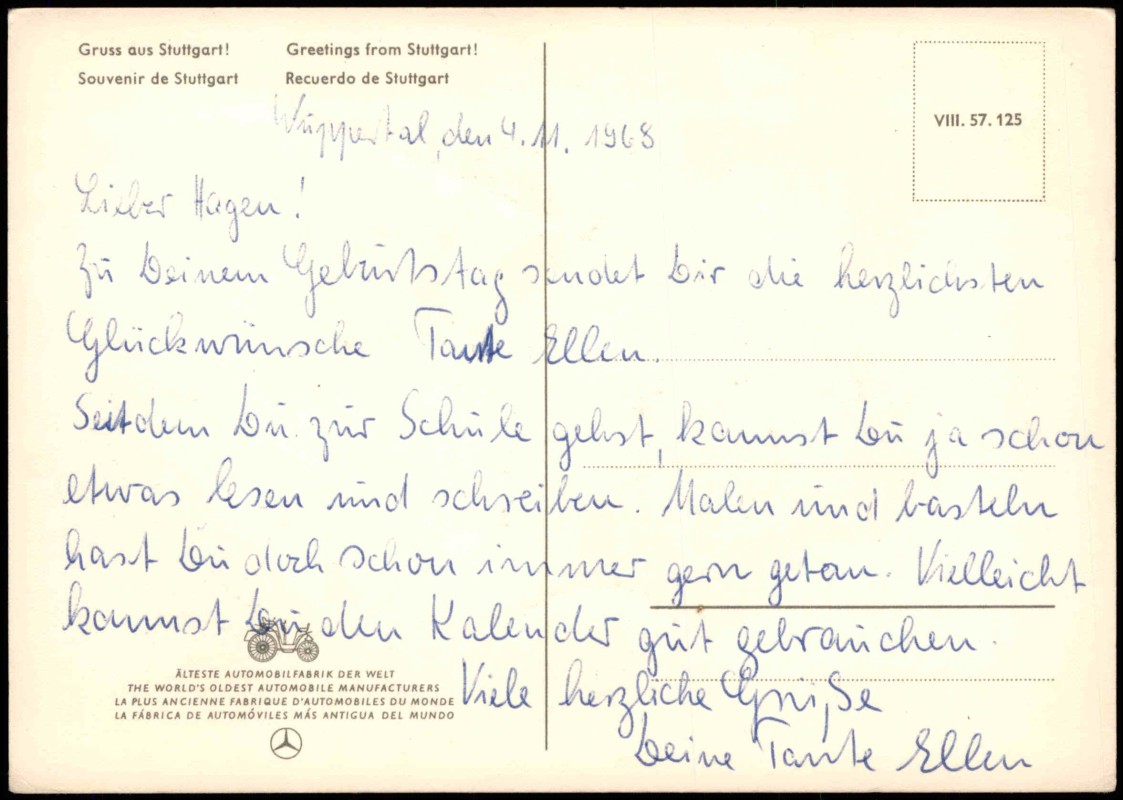 Gruss aus Stuttgart! Greetings from Stuttgart!
Souvenir de Stuttgart Recuerdo de Stuttgart
VIII. 57. 125
Wuppertal, den 4. 11. 1968
Lieber Hagen!
Zu Deinem Geburtstag sendet Dir die herzlichsten
Glückwünsche Tante Ellen.
Seitdem Du zur Schule gehst, kannst Du ja schon
etwas lesen und schreiben. Malen und basteln
hast Du doch schon immer gern getan. Vielleicht
kannst Du den Kalender gut gebrauchen.
Viele herzliche Grüße
Deine Tante Ellen
ÄLTESTE AUTOMOBILFABRIK DER WELT
THE WORLD'S OLDEST AUTOMOBILE MANUFACTURERS
LA PLUS ANCIENNE FABRIQUE D'AUTOMOBILES DU MONDE
LA FÁBRICA DE AUTOMÓVILES MÁS ANTIGUA DEL MUNDO